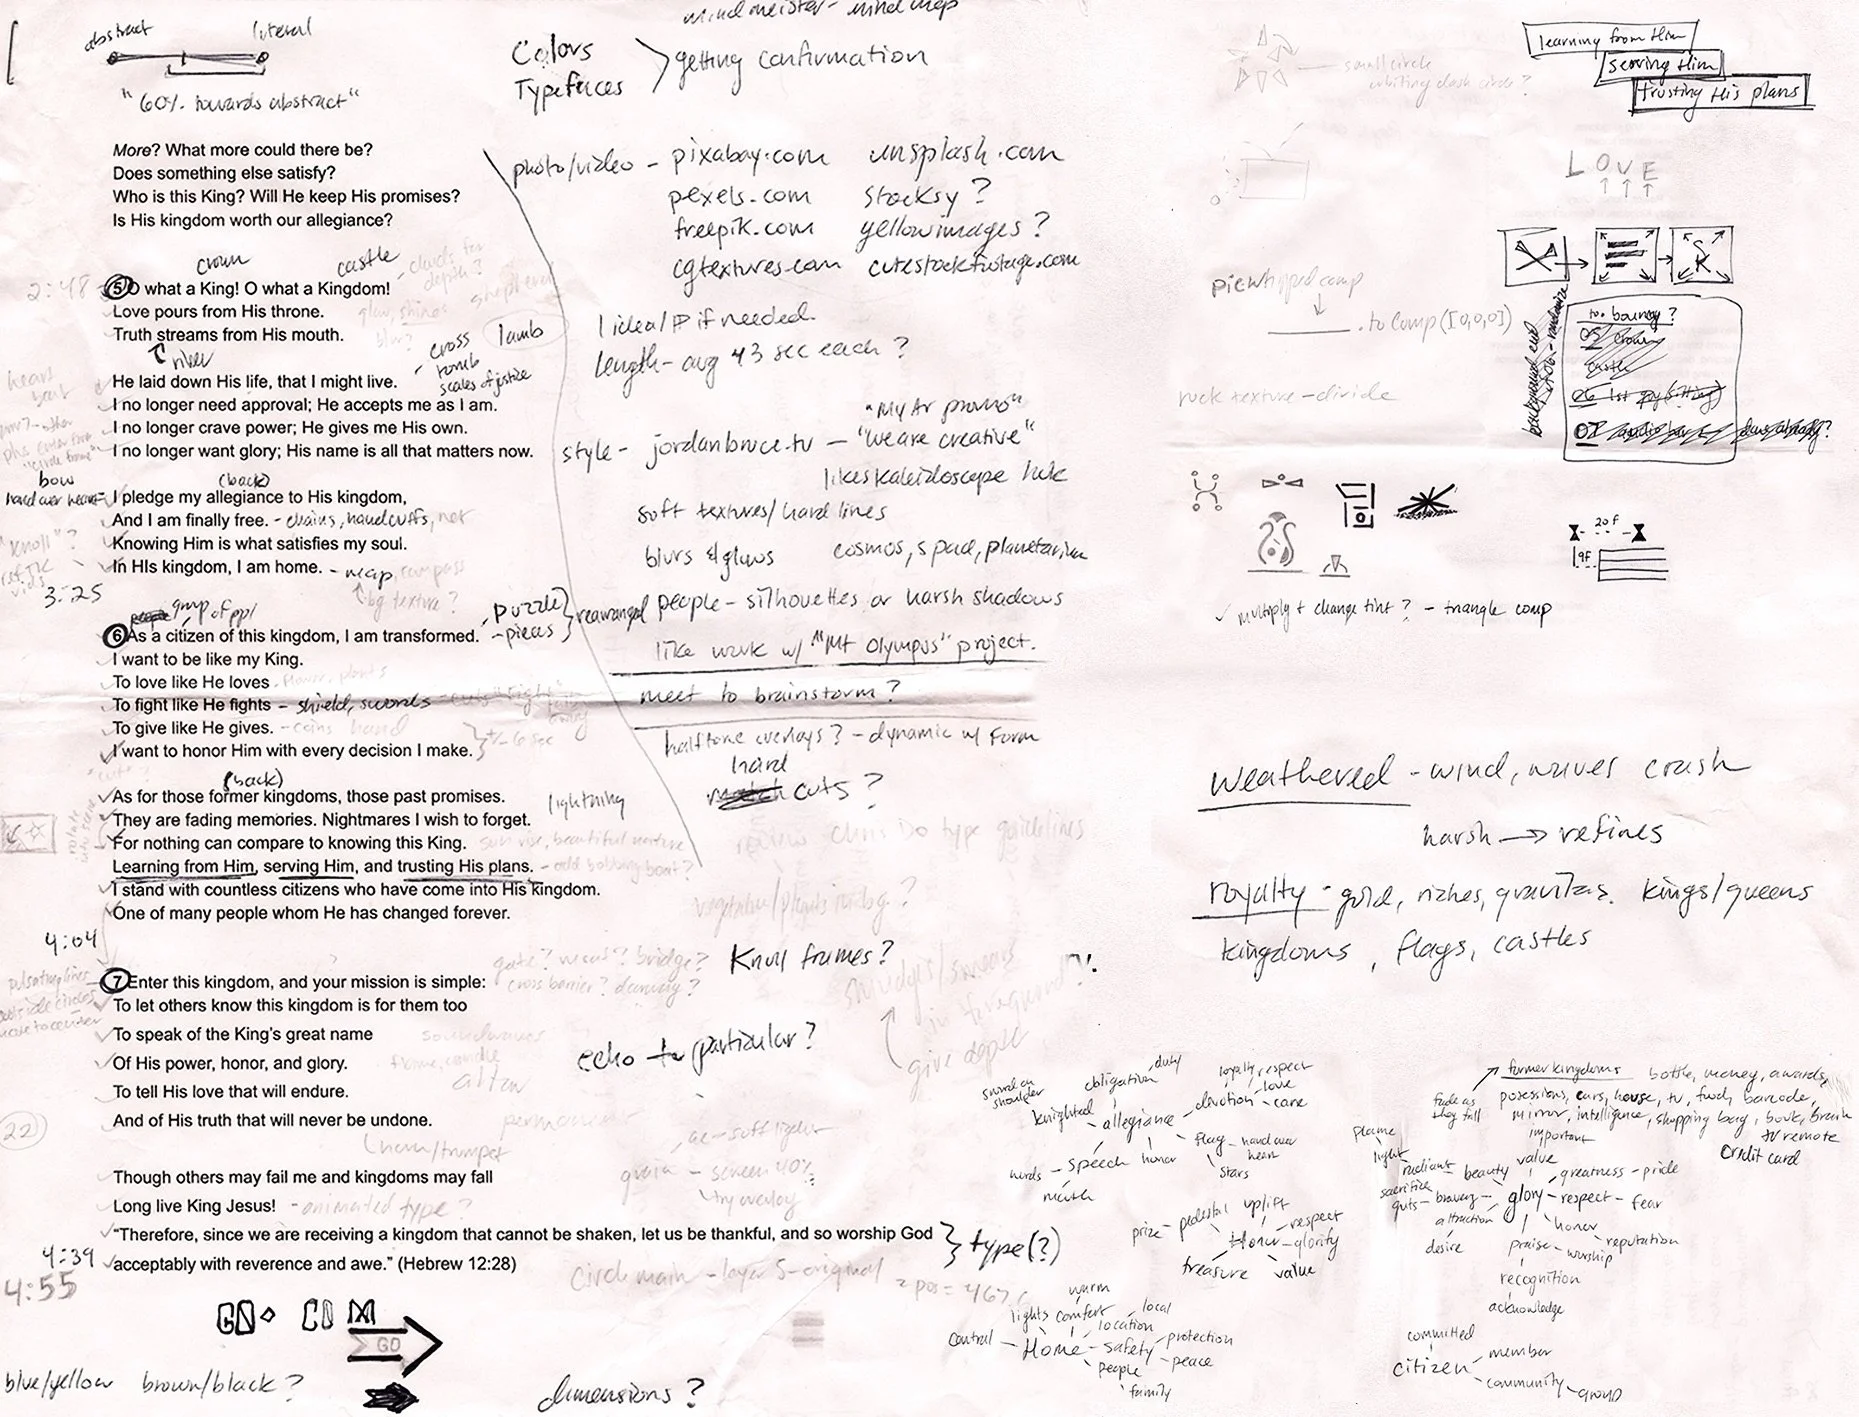 mindmeister - mind map
abstract
literal
"60% towards abstract"
Colors
Typefaces
getting confirmation
More? What more could there be?
Does something else satisfy?
Who is this King? Will He keep His promises?
Is His kingdom worth our allegiance?
crown
castle
2:48
5 O what a King! O what a Kingdom!
Love pours from His throne.
Truth streams from His mouth.
river
cross
tomb
scales of justice
lamb
He laid down His life, that I might live.
I no longer need approval; He accepts me as I am.
I no longer crave power; He gives me His own.
I no longer want glory; His name is all that matters now.
bow
(back)
hand over heart
I pledge my allegiance to His kingdom,
And I am finally free. - chains, handcuffs, net
Knowing Him is what satisfies my soul.
In HIs kingdom, I am home. - map, compass
bg texture?
"Knoll"?
3:25
group of ppl
puzzle
- pieces
rearranged
6 As a citizen of this kingdom, I am transformed.
I want to be like my King.
To love like He loves
To fight like He fights - shield, swords
To give like He gives. - coins hand
I want to honor Him with every decision I make.
+/- 6 sec
(back)
As for those former kingdoms, those past promises.
lightning
They are fading memories. Nightmares I wish to forget.
For nothing can compare to knowing this King. sunrise, beautiful nature
Learning from Him, serving Him, and trusting His plans. - add bobbing boat?
I stand with countless citizens who have come into His kingdom.
One of many people whom He has changed forever.
4:04
gate? moat? bridge?
7 Enter this kingdom, and your mission is simple:
cross barrier? dancing?
pulsating lines
outside circles
move to center
To let others know this kingdom is for them too
To speak of the King's great name
soundwaves
Of His power, honor, and glory.
flame, candle
altar
To tell His love that will endure.
And of His truth that will never be undone.
permanent
22
(horn/trumpet
Though others may fail me and kingdoms may fall
Long live King Jesus! - animated type?
"Therefore, since we are receiving a kingdom that cannot be shaken, let us be thankful, and so worship God
acceptably with reverence and awe." (Hebrew 12:28)
type(?)
4:39
4:55
Circle main - layer 5 - original
GO
blue/yellow brown/black?
dimensions?
photo/video - pixabay.com unsplash.com
pexels.com stocksy?
freepik.com yellowimages?
cgtextures.com cutestockfootage.com
1 idea/P if needed.
length - avg 43 sec each?
"My Ar promo"
style - jordanbruce.tv - "we are creative"
likes kaleidoscope look
soft textures/hard lines
blurs & glows cosmos, space, planetarium
people - silhouettes or harsh shadows
like work w/ "Mt Olympus" project.
meet to brainstorm?
halftone overlays? - dynamic w/ form
hard
cuts?
review Chris Do type guidelines
Knoll frames?
echo particular?
smudges/smears
in foreground?
give depth
grain - screen 40%
try overlay
small circle
learning from Him
serving Him
trusting His plans
LOVE
comp
.toComp([0,0,0])
rock texture - divide
too bouncy?
05 crown
castle
20f
9f
multiply & change tint? - triangle comp
weathered - wind, waves crash
harsh → refines
royalty - gold, riches, gravitas. kings/queens
kingdoms, flags, castles
sword on
shoulder
obligation
duty
loyalty
respect
love
care
devotion
knighted
allegiance
words - speech
mouth
honor
flag - hand over
heart
stars
prize - pedestal
uplift
respect
Honor - glorify
treasure
value
warm
lights
comfort
local
location
central
Home - safety
protection
peace
people
family
former kingdoms
fade as
they fall
bottle, money, awards,
possessions, cars, house, tv, food, barcode,
mirror, intelligence, shopping bag, book, brain
tv remote
credit card
important
value
flame
light
radiant - beauty
greatness - pride
sacrifice
guts - bravery
glory - respect - fear
attraction
desire
honor
reputation
praise - worship
recognition
acknowledge
committed
citizen
member
community - group